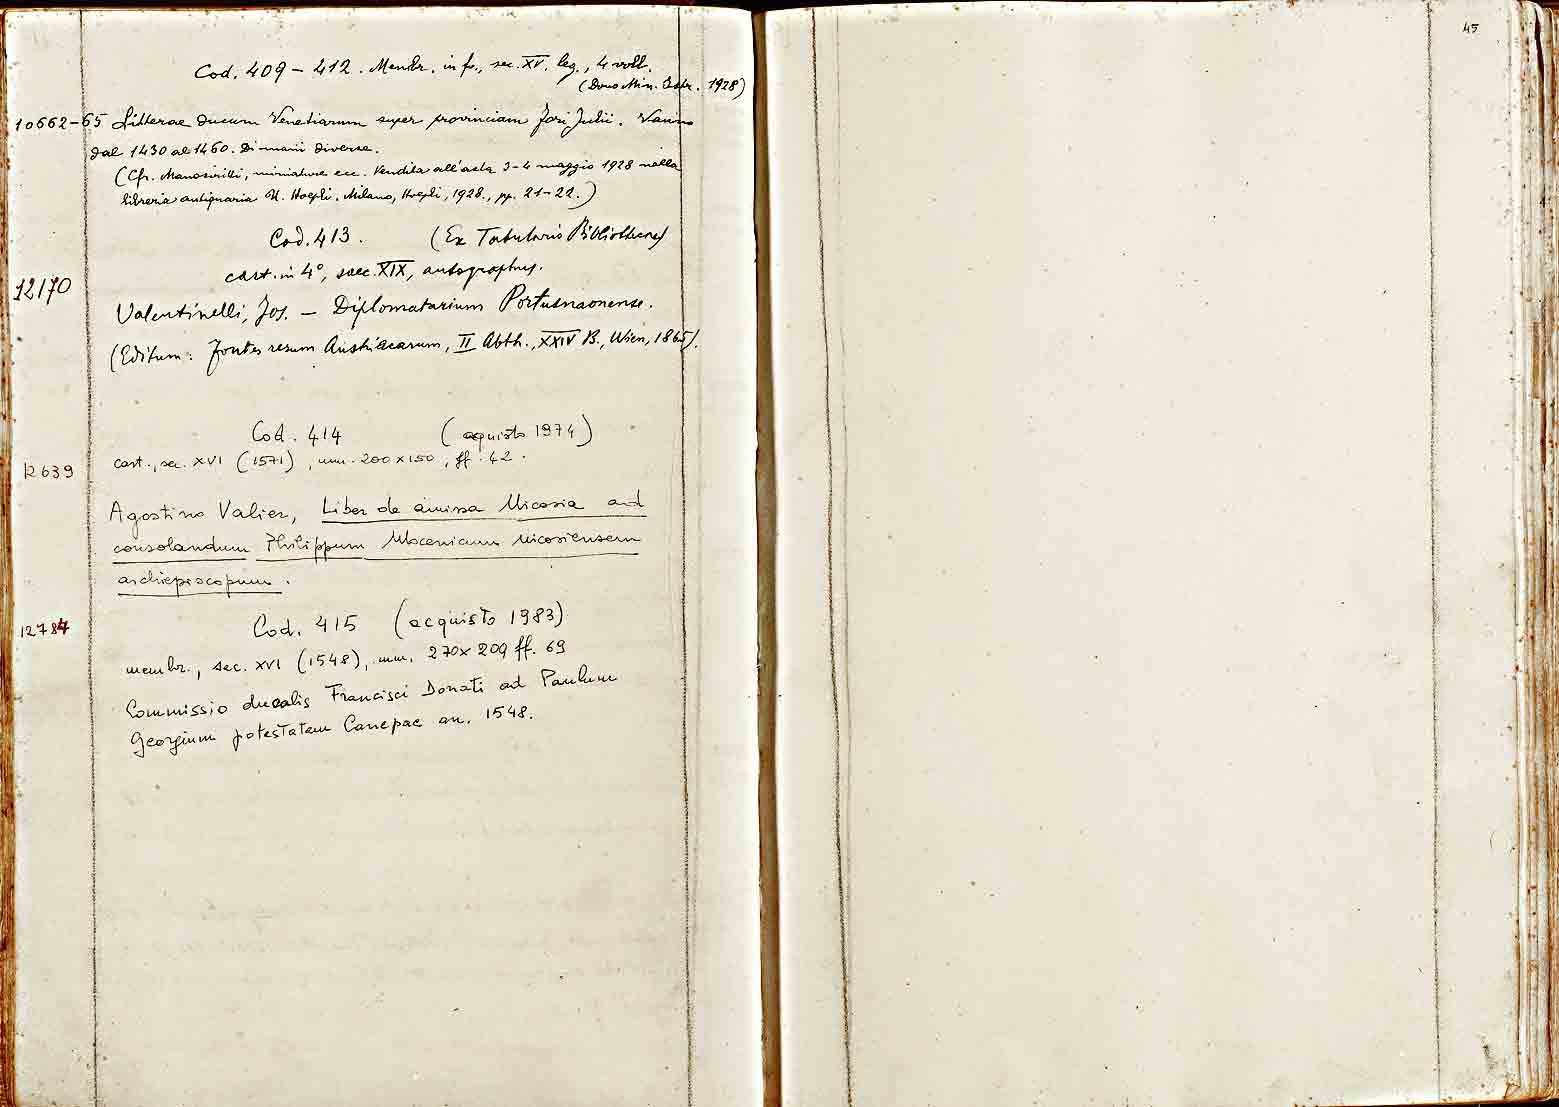 Cod. 409 – 412. Membr. in fo., sec. XV. leg., 4 voll.
(Dono Min. Istr. 1928)
10662-65 Litterae ducum Venetiarum super provinciam Fori Julii. Vanno
dal 1430 al 1460. Di mani diverse.
(Cfr. Manoscritti, miniature ecc. Vendita all'asta 3-4 maggio 1928 nella
libreria antiquaria U. Hoepli. Milano, Hoepli, 1928., pp. 21-22.)
Cod. 413. (Ex Tabulario Bibliothecae)
cart. in 4°, saec. XIX, autographus.
12170
Valentinelli, Jos. – Diplomatarium Portusnaonense.
(Editum: Fontes rerum Austriacarum, II Abth., XXIV B., Wien, 1865).
Cod. 414 (acquisto 1974)
12639 cart., sec. XVI (1571), mm. 200 x 150, ff. 42.
Agostino Valier, Liber de amissa Nicosia ad
consolandum Philippum Mocenicum nicosiensem
archiepiscopum.
12784 Cod. 415 (acquisto 1983)
membr., sec. XVI (1548), mm. 270 x 209 ff. 69
Commissio ducalis Francisci Donati ad Paulum
Georgium potestatem Canepae an. 1548.
45